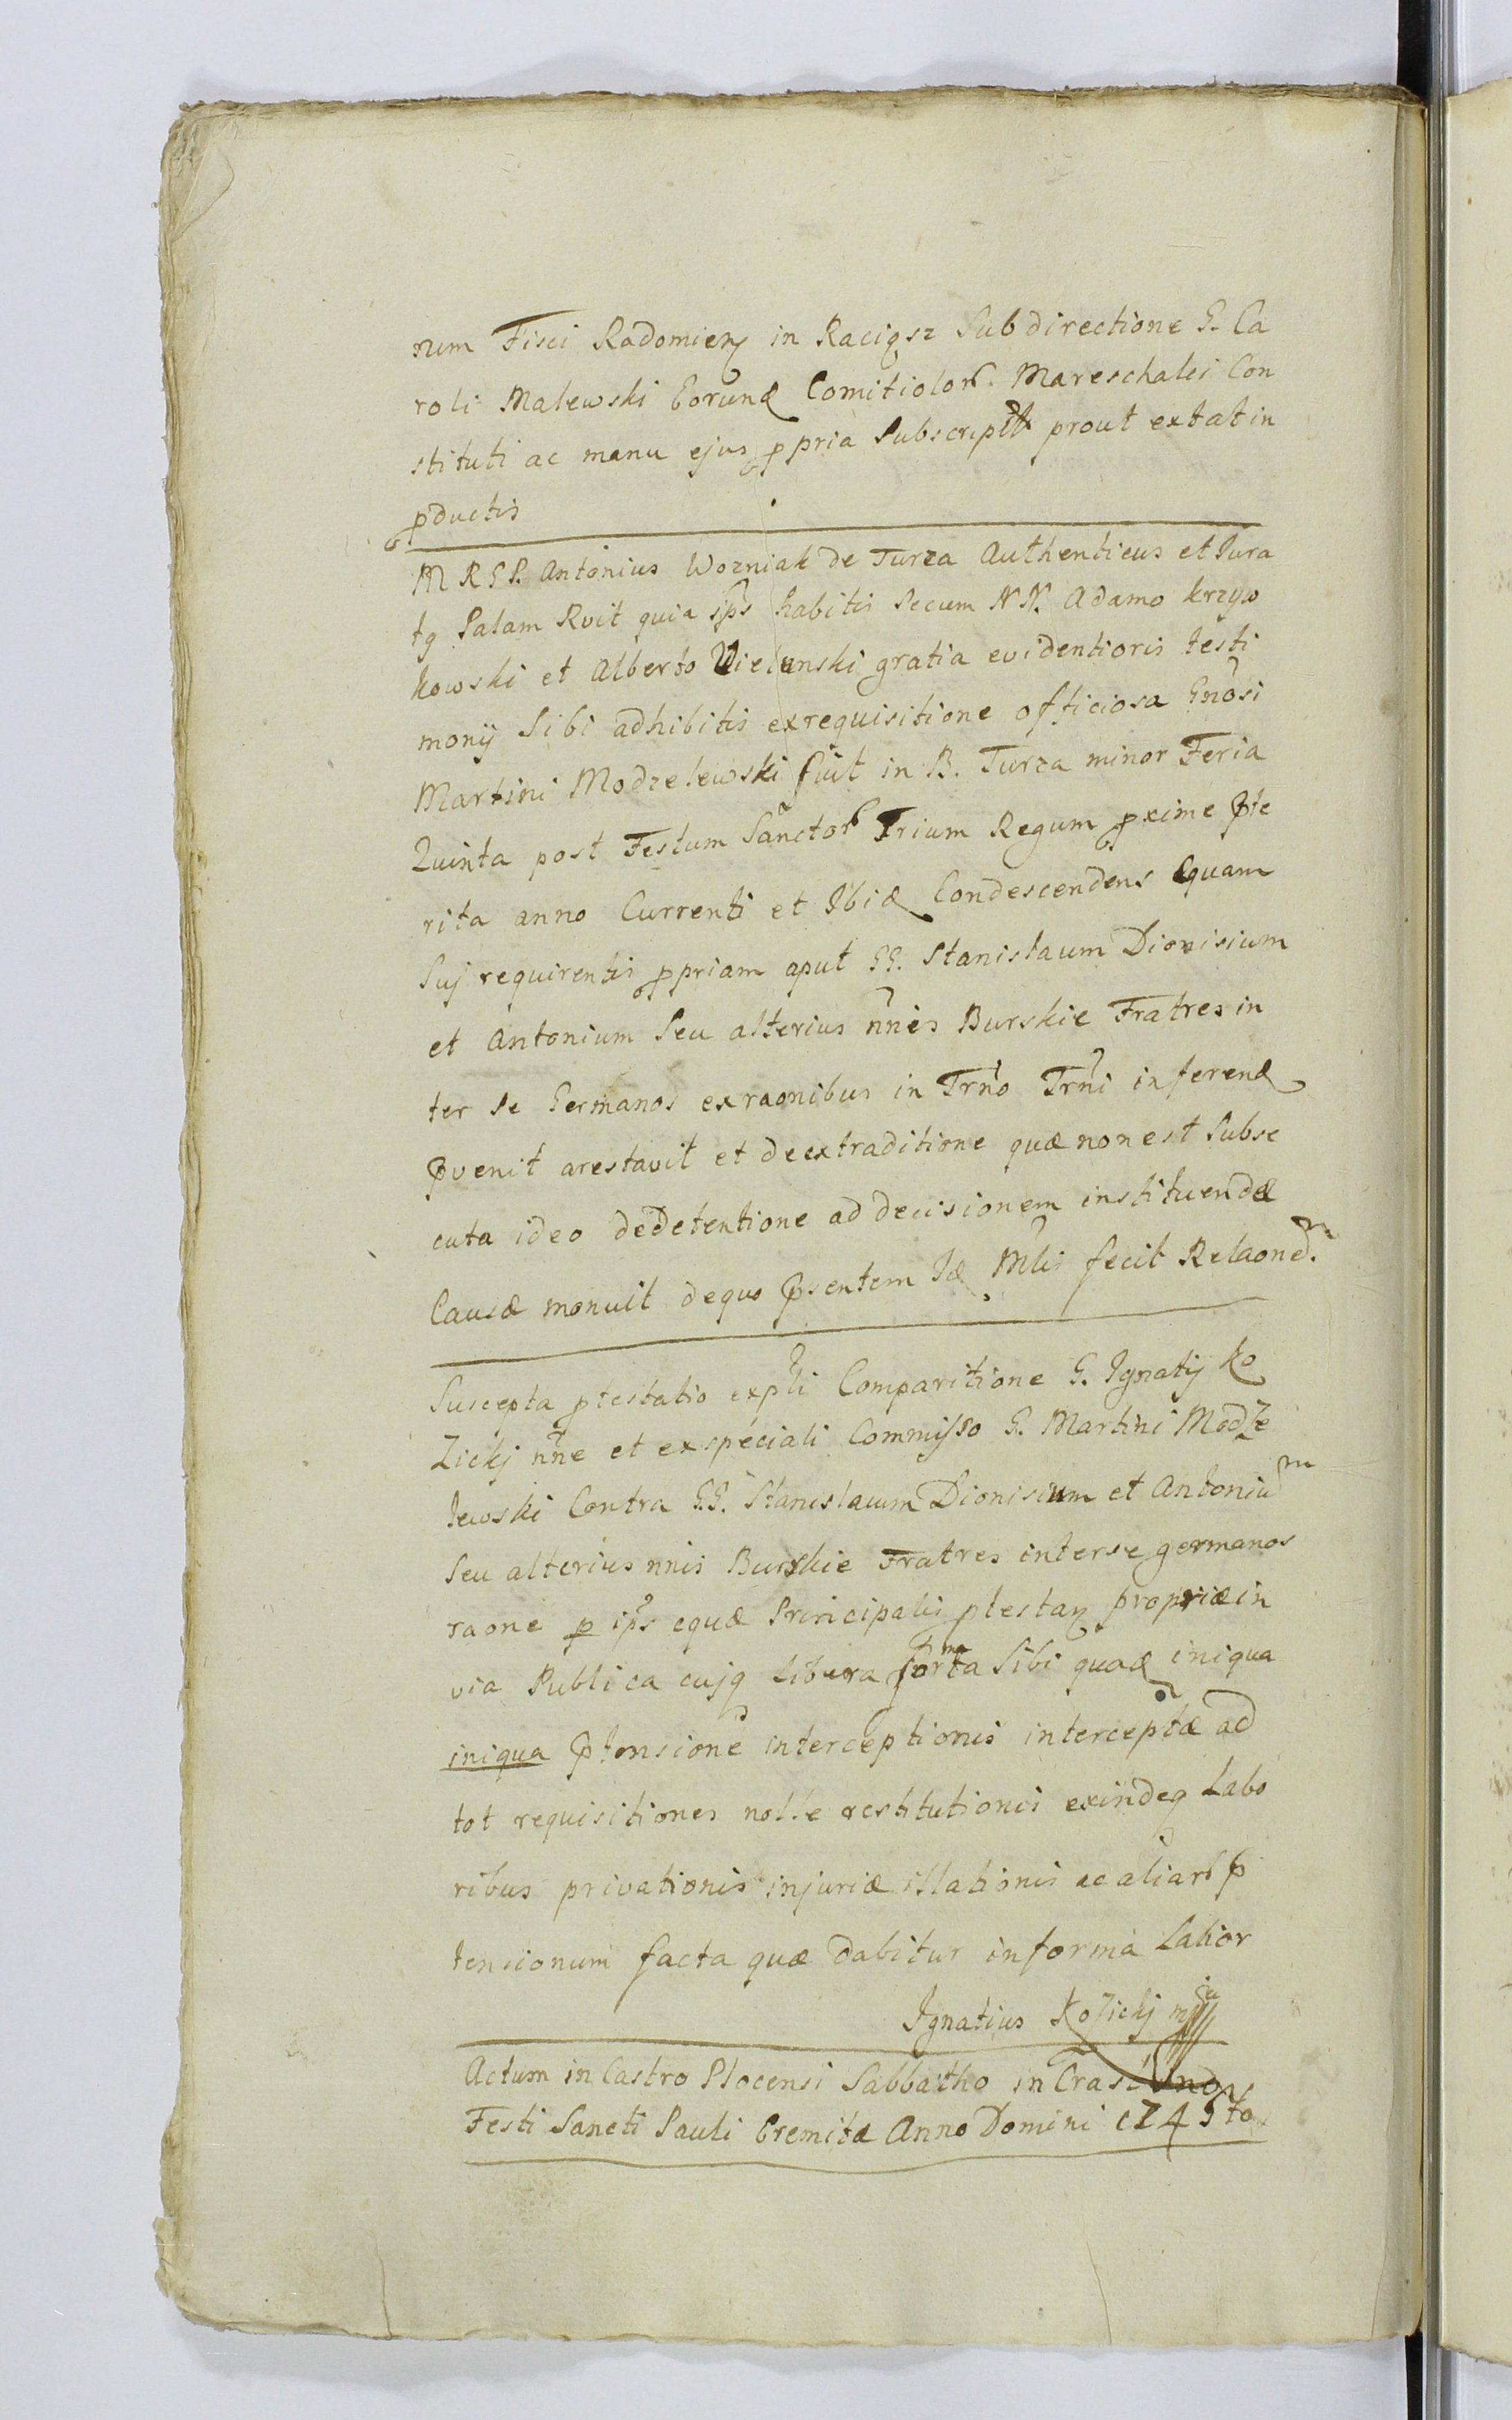 rum Fisci Radomien in Raciąsz Sub directione G. Ca
roli Malewski Eorund Comitiolor. Mareschalei Con
stituti ac manu ejus ppria Subscript prout extat in
pductis
M R G P. Antonius Wozniak de Turza Authenticus et Jura
tq Palam Rvit quia ips habitis Secum N N. Adamo krzyw
kowski et Alberto Zielenski gratia evidentioris testi
monij Sibi adhibitis ex requisitione officiosa Gnosi
Martini Modzelewski fuit in B. Turza minor Feria
Quinta post Festum Sanctor Trium Regum pxime pte
rita anno Currenti et Ibid Condescendens Equam
Suj requirentis ppriam aput GG. Stanislaum Dionisium
et Antonium Seu alterius nnis Burskie Fratres in
ter Se Germanos ex raonibus in Trno Trni inferend
pvenit arestavit et de extraditione quæ non est Subse
cuta ideo de detentione ad decisionem instituendæ
Causæ monuit de quo psentem Id Mlis fecit Relaonem.
Suscepta ptestatio ex pli Comparitione G. Ignatij Ko
Zickj nne et ex speciali Commisso G. Martini Modze
lewski Contra GG. Stanislaum Dionisium et Antonium
Seu alterius nnis Burskie Fratres inter se germanos
raone p ips equæ Principalis ptestan propriæ in
via Publica cujq libera forma Sibi quad iniqua
iniqua ptensione interceptionis interceptæ ad
tot requisitiones nolle restitutionis exindeq Labo
ribus privationis injuriæ illationis ac aliar p
tensionum facta quæ dabitur in forma Latior
Ignatius Kozickj mp
Actum in Castro Plocensi Sabbatho in Crastino
Festi Sancti Pauli Eremitæ Anno Domini 1745to